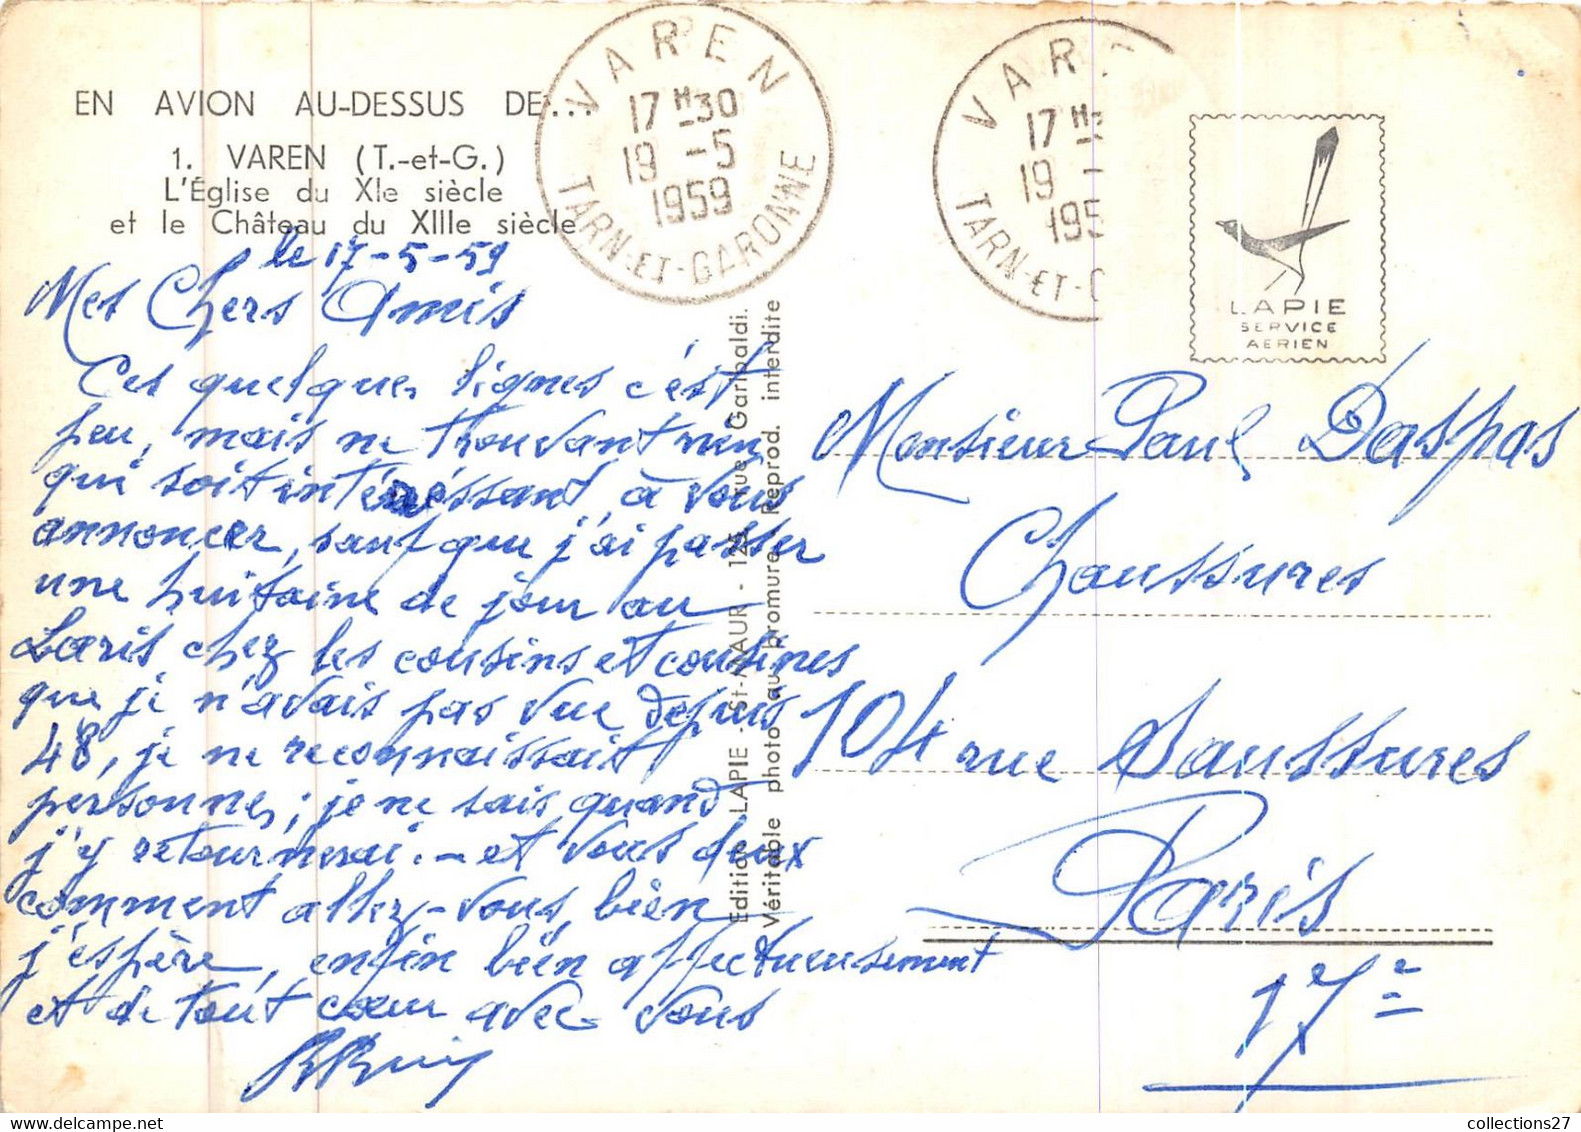 EN AVION AU-DESSUS DE...
1. VAREN (T.-et-G.)
L'Église du XIe siècle
et le Château du XIIIe siècle
VAREN
17 H 30
19 - 5
1959
TARN-ET-GARONNE
VAR
17 H 3
19 -
195
TARN-ET-G
LAPIE
SERVICE
AERIEN
le 17-5-59
Mes Chers Amis
Ces quelques lignes c'est
peu, mais ne trouvant rien
qui soit intéressant, à vous
annoncer, sauf que j'ai passer
une huitaine de jour au
Laris chez les cousins et cousines
que je n'avais pas vue depuis
48, je ne reconnaissait
personnes; je ne sais quand
j'y retournerai. - et vous deux
comment allez-vous, bien
j'espère, enfin bien affectueusement
et de tout cœur avec vous
Edition LAPIE - St-MAUR - 125, rue Garibaldi.
Véritable photo au bromure. Reprod. interdite
Monsieur Paul Daspas
Chaussures
104 rue Saussures
Paris
17e
collections27